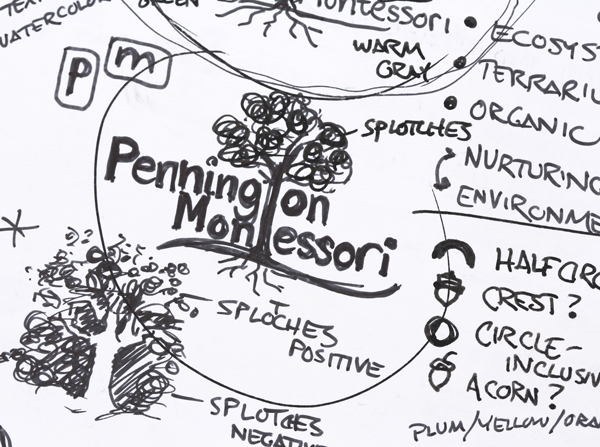 WATERCOLOR
GREEN
Montessori
WARM
GRAY
P m
SPLOTCHES
Pennington
Montessori
SPLOCHES
POSITIVE
SPLOTCHES
ECOSYS
TERRARIU
ORGANIC
NURTURING
ENVIRONME
HALF CIRC
CREST?
CIRCLE-
INCLUSIV
ACORN?
PLUM/YELLOW/ORA